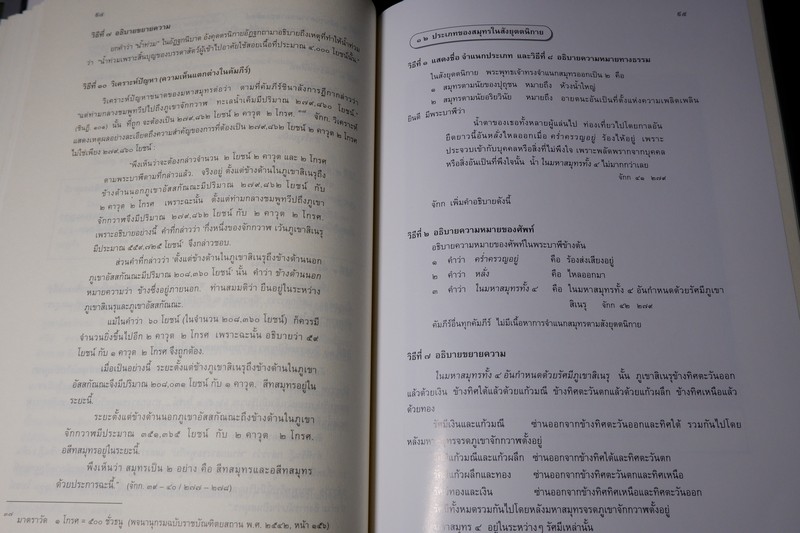 ๕๗
วิธีที่ ๗ อธิบายขยายความ
ว่า "น้ำท่วมเพราะสิ้นบุญของบรรดาสัตว์ผู้เข้าไปอาศัยใช้สอยเนื้อที่ประมาณ ๔,๐๐๐ โยชน์นั้น"
วิธีที่ ๑๐ วิเคราะห์ปัญหา (ความเห็นแตกต่างในคัมภีร์)
วิเคราะห์ปัญหาขนาดของมหาสมุทรต่อว่า ตามที่คัมภีร์ชินาลังการฎีกากล่าวว่า
"แต่ท่ามกลางชมพูทวีปไปถึงภูเขาจักกวาฬ ทะเลน้ำเค็มมีปริมาณ ๒๗๙,๘๖๐ โยชน์"
แสดงเหตุผลอย่างละเอียดถึงความสำคัญของการที่ต้องเป็น ๒๗๙,๘๖๒ โยชน์ ๒ คาวุต ๒ โกรศ
ไม่ใช่เพียง ๒๗๙,๘๖๐ โยชน์
"พึงเห็นว่าจะต้องกล่าวจำนวน ๒ โยชน์ ๒ คาวุต และ ๒ โกรศ
ตามพระบาฬีตามที่กล่าวแล้ว จริงอยู่ ตั้งแต่ข้างด้านในภูเขาสิเนรุถึง
ข้างด้านนอกภูเขาอัสสกัณณะมีปริมาณ ๒๗๙,๘๖๒ โยชน์ กับ
๒ คาวุต ๒ โกรศ เพราะฉะนั้น ตั้งแต่ท่ามกลางชมพูทวีปถึงภูเขา
จักกวาฬจึงมีปริมาณ ๒๗๙,๘๖๒ โยชน์ กับ ๒ คาวุต ๒ โกรศ.
เพราะอธิบายอย่างนี้ คำที่กล่าวว่า 'กึ่งหนึ่งของจักกวาฬ เว้นภูเขาสิเนรุ
มีประมาณ ๕๕๙,๗๒๕ โยชน์' จึงกล่าวชอบ.
ส่วนคำที่กล่าวว่า 'ตั้งแต่ข้างด้านในภูเขาสิเนรุถึงข้างด้านนอก
ภูเขาอัสสกัณณะมีปริมาณ ๒๐๘,๓๖๐ โยชน์' นั้น คำว่า ข้างด้านนอก
หมายความว่า ข้างซึ่งอยู่ภายนอก ท่านสมมติว่า ยืนอยู่ในระหว่าง
ภูเขาสิเนรุและภูเขาอัสสกัณณะ.
แม้ในคำว่า ๖๐ โยชน์ (ในจำนวน ๒๐๘,๓๖๐ โยชน์) ก็ควรมี
จำนวนยิ่งขึ้นไปอีก ๒ คาวุต ๒ โกรศ เพราะฉะนั้น อธิบายว่า ๕๙
โยชน์ กับ ๑ คาวุต ๒ โกรศ จึงถูกต้อง.
เมื่อเป็นอย่างนี้ ระยะตั้งแต่ข้างภูเขาสิเนรุถึงข้างด้านในภูเขา
อัสสกัณณะจึงมีปริมาณ ๒๐๘,๐๓๑ โยชน์ กับ ๑ คาวุต. สีทสมุทรอยู่ใน
ระยะนี้.
ระยะตั้งแต่ข้างด้านนอกภูเขาอัสสกัณณะถึงข้างด้านในภูเขา
จักกวาฬมีปริมาณ ๓๕๑,๓๖๕ โยชน์ กับ ๒ คาวุต ๒ โกรศ.
อสีทสมุทรอยู่ในระยะนี้.
พึงเห็นว่า สมุทรเป็น ๒ อย่าง คือ สีทสมุทรและอสีทสมุทร
ด้วยประการฉะนี้." (จักก. ๓๙ - ๔๐ / ๒๗๗ - ๒๗๘)
มาตราวัด ๑ โกรศ = ๕๐๐ ชั่วธนู (พจนานุกรมฉบับราชบัณฑิตยสถาน พ.ศ. ๒๕๔๒, หน้า ๑๕๖)
๕๘
๑๒ ประเภทของสมุทรในสังยุตตนิกาย
วิธีที่ ๑ แสดงชื่อ จำแนกประเภท และวิธีที่ ๘ อธิบายความหมายทางธรรม
ในสังยุตตนิกาย พระพุทธเจ้าทรงจำแนกสมุทรออกเป็น ๒ คือ
๑ สมุทรตามนัยของปุถุชน หมายถึง ห้วงน้ำใหญ่
๒ สมุทรตามนัยอริยวินัย หมายถึง อายตนะอันเป็นที่ตั้งแห่งความเพลิดเพลิน
ยินดี มีพระบาฬีว่า
น้ำตาของเธอทั้งหลายผู้แล่นไป ท่องเที่ยวไปโดยกาลอัน
ยืดยาวนี้อันหลั่งไหลออกเมื่อ คร่ำครวญอยู่ ร้องไห้อยู่ เพราะ
ประจวบเข้ากับบุคคลหรือสิ่งที่ไม่พึงใจ เพราะพลัดพรากจากบุคคล
หรือสิ่งอันเป็นที่พึงใจนั้น น้ำ ในมหาสมุทรทั้ง ๔ ไม่มากกว่าเลย
จักก ๔๑ ๒๗๙
จักก เพิ่มคำอธิบายดังนี้
วิธีที่ ๒ อธิบายความหมายของศัพท์
อธิบายความหมายของศัพท์ในพระบาฬีข้างต้น
๑ คำว่า คร่ำครวญอยู่ คือ ร้องส่งเสียงอยู่
๒ คำว่า หลั่ง คือ ไหลออกมา
๓ คำว่า ในมหาสมุทรทั้ง ๔ คือ ในมหาสมุทรทั้ง ๔ อันกำหนดด้วยรัศมีภูเขา
สิเนรุ จักก ๔๒ ๒๗๙
คัมภีร์อื่นทุกคัมภีร์ ไม่มีเนื้อหาการจำแนกสมุทรตามสังยุตตนิกาย
วิธีที่ ๗ อธิบายขยายความ
ในมหาสมุทรทั้ง ๔ อันกำหนดด้วยรัศมีภูเขาสิเนรุ นั้น ภูเขาสิเนรุข้างทิศตะวันออก
แล้วด้วยเงิน ข้างทิศใต้แล้วด้วยแก้วมณี ข้างทิศตะวันตกแล้วด้วยแก้วผลึก ข้างทิศเหนือแล้ว
ด้วยทอง
รัศมีเงินและแก้วมณี ซ่านออกจากข้างทิศตะวันออกและทิศใต้ รวมกันไปโดย
หลังมหาสมุทรจรดภูเขาจักกวาฬตั้งอยู่
แก้วมณีและแก้วผลึก ซ่านออกจากข้างทิศใต้และทิศตะวันตก
แก้วผลึกและทอง ซ่านออกจากข้างทิศตะวันตกและทิศเหนือ
ทองและเงิน ซ่านออกจากข้างทิศทิศเหนือและทิศตะวันออก
ทั้งหมดรวมกันไปโดยหลังมหาสมุทรจรดภูเขาจักกวาฬตั้งอยู่
สมุทร ๔ อยู่ในระหว่างๆ รัศมีเหล่านั้น